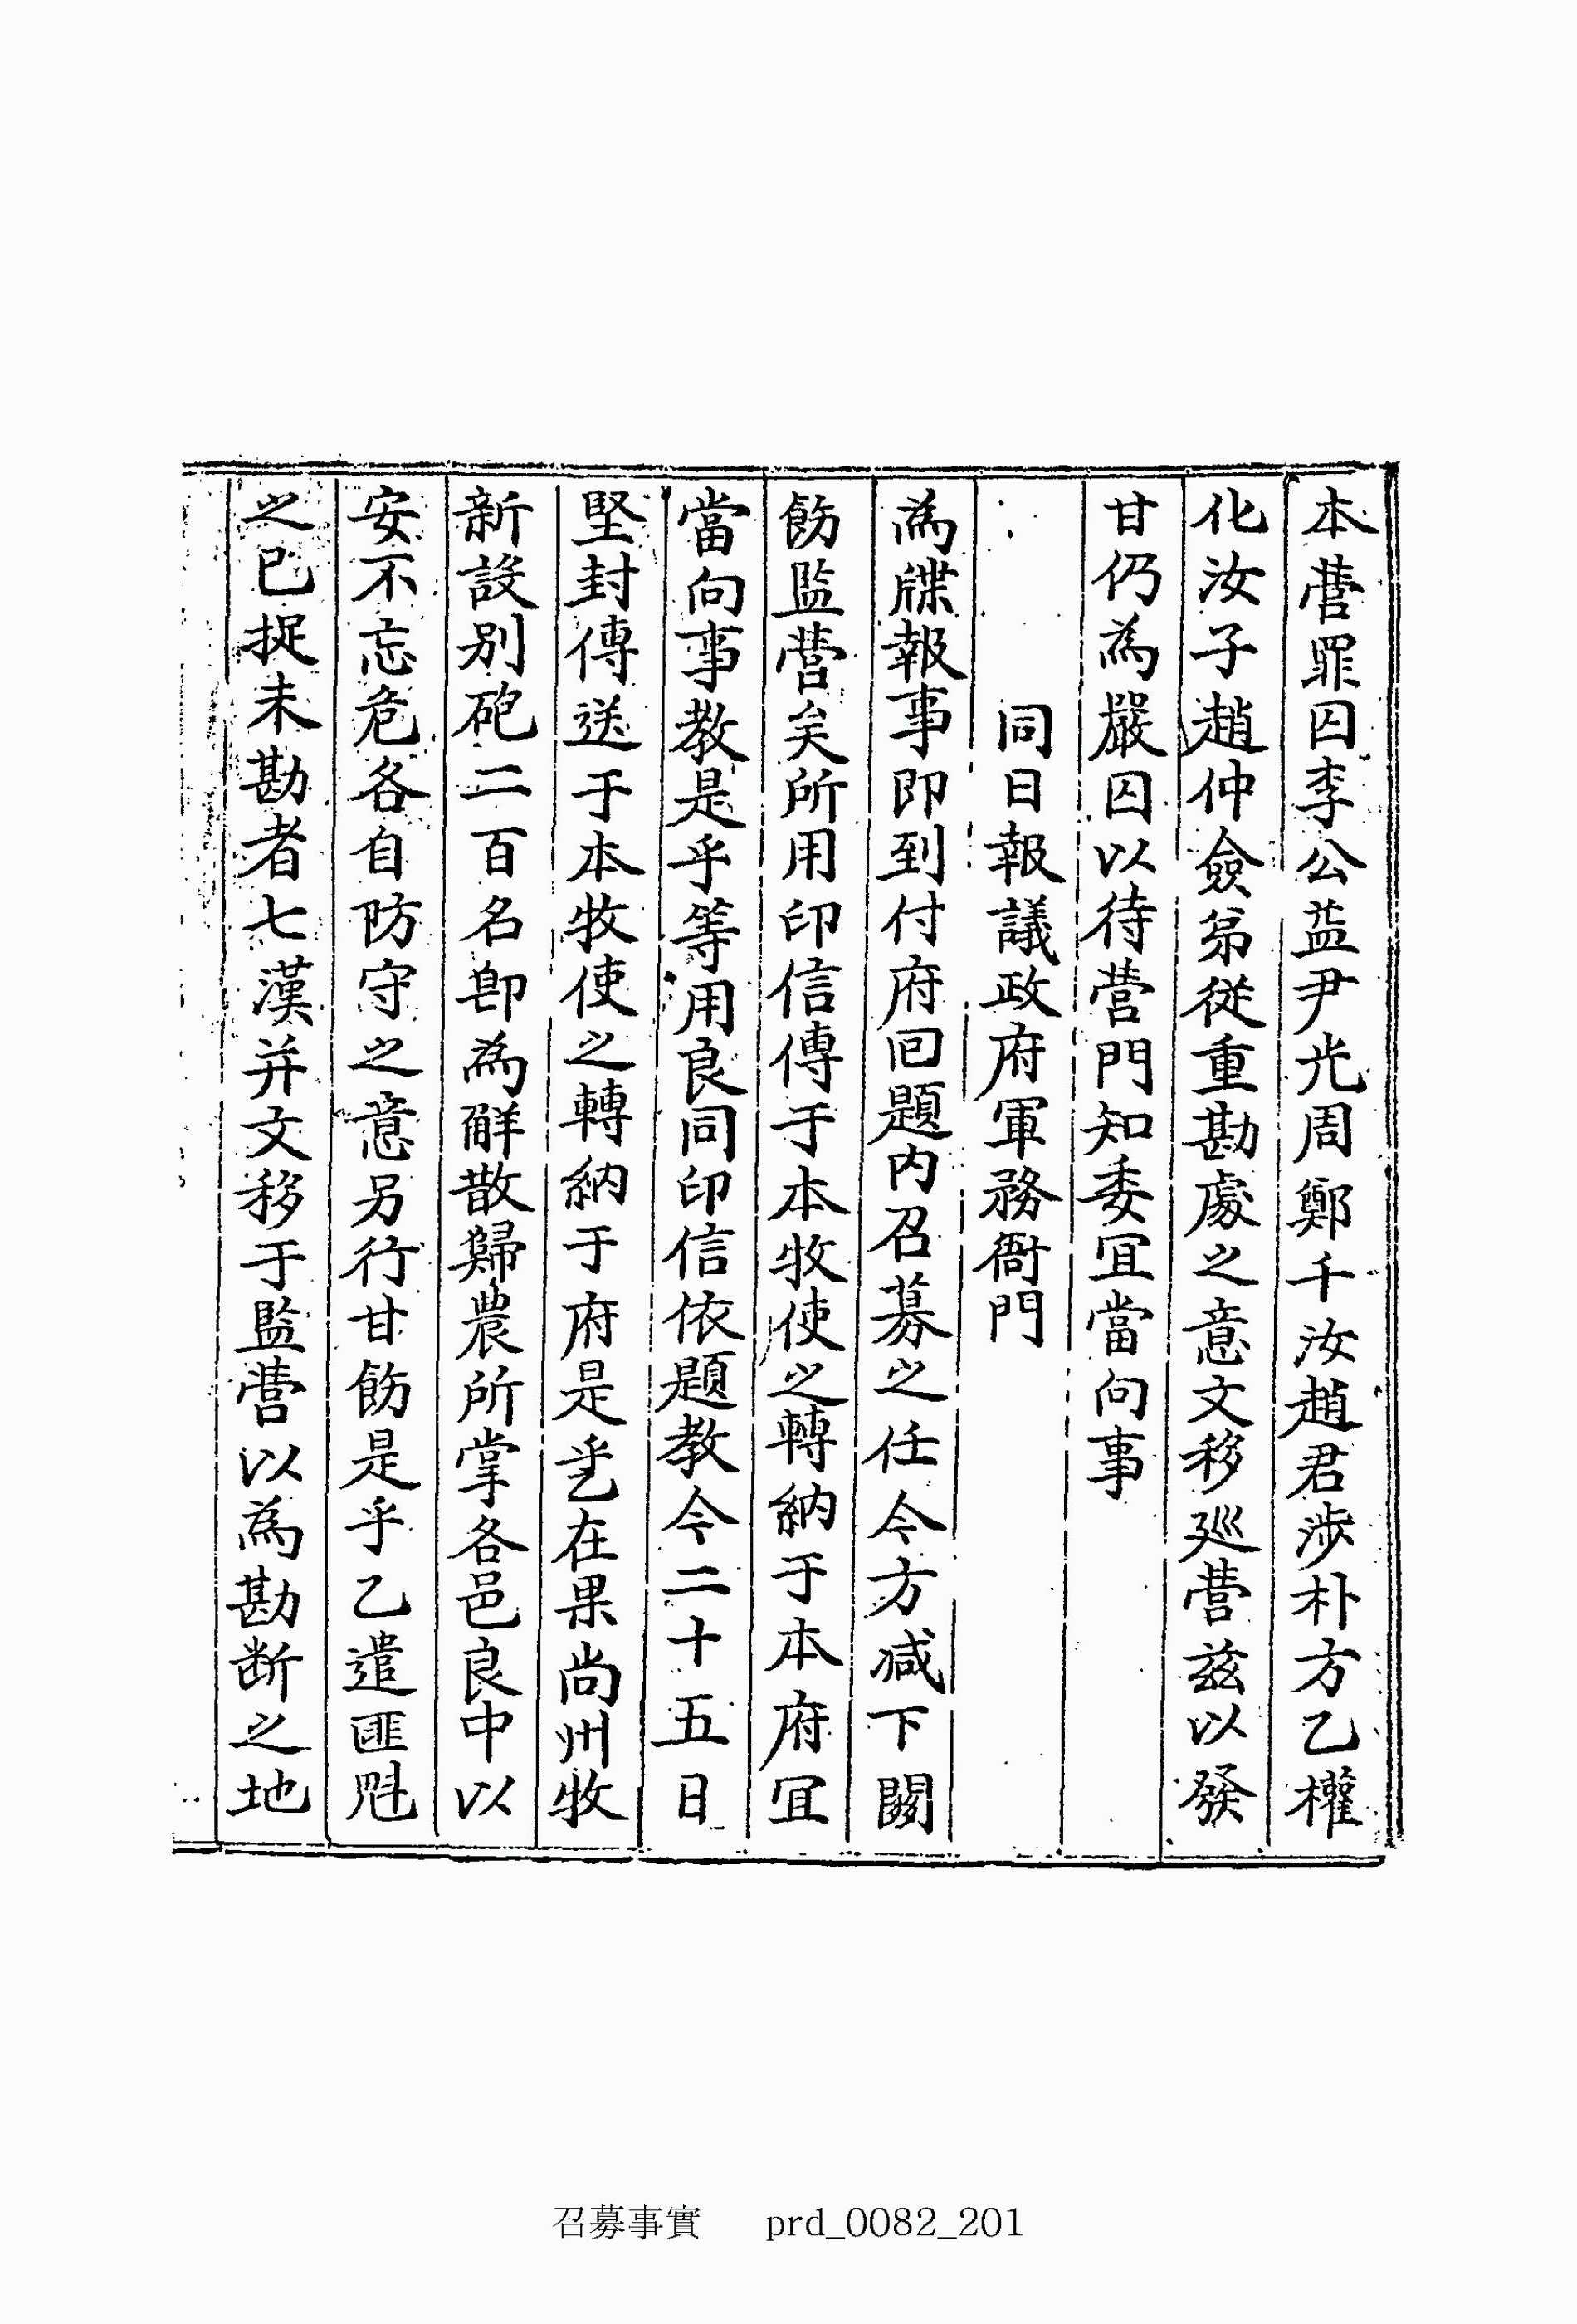 本營罪囚李公益尹光周鄭千汝趙君涉朴方乙權
化汝子趙仲僉弟從重勘處之意文移廵營玆以發
甘仍爲嚴囚以待營門知委冝當向事
同日報議政府軍務衙門
爲牒報事卽到付府回題內召募之任今方减下關
飭監營矣所用印信傳于本牧使之轉納于本府冝
當向事敎是乎等用良同印信依題敎今二十五日
堅封傳送于本牧使之轉納于府是乎乙在果尙州牧
新設别砲二百名卽爲觧散歸農所掌各邑良中以
安不忘危各自防守之意另行甘飭是乎乙遣匪魁
之已捉未勘者七漢幷文移于監營以爲勘断之地
召募事實 prd_0082_201